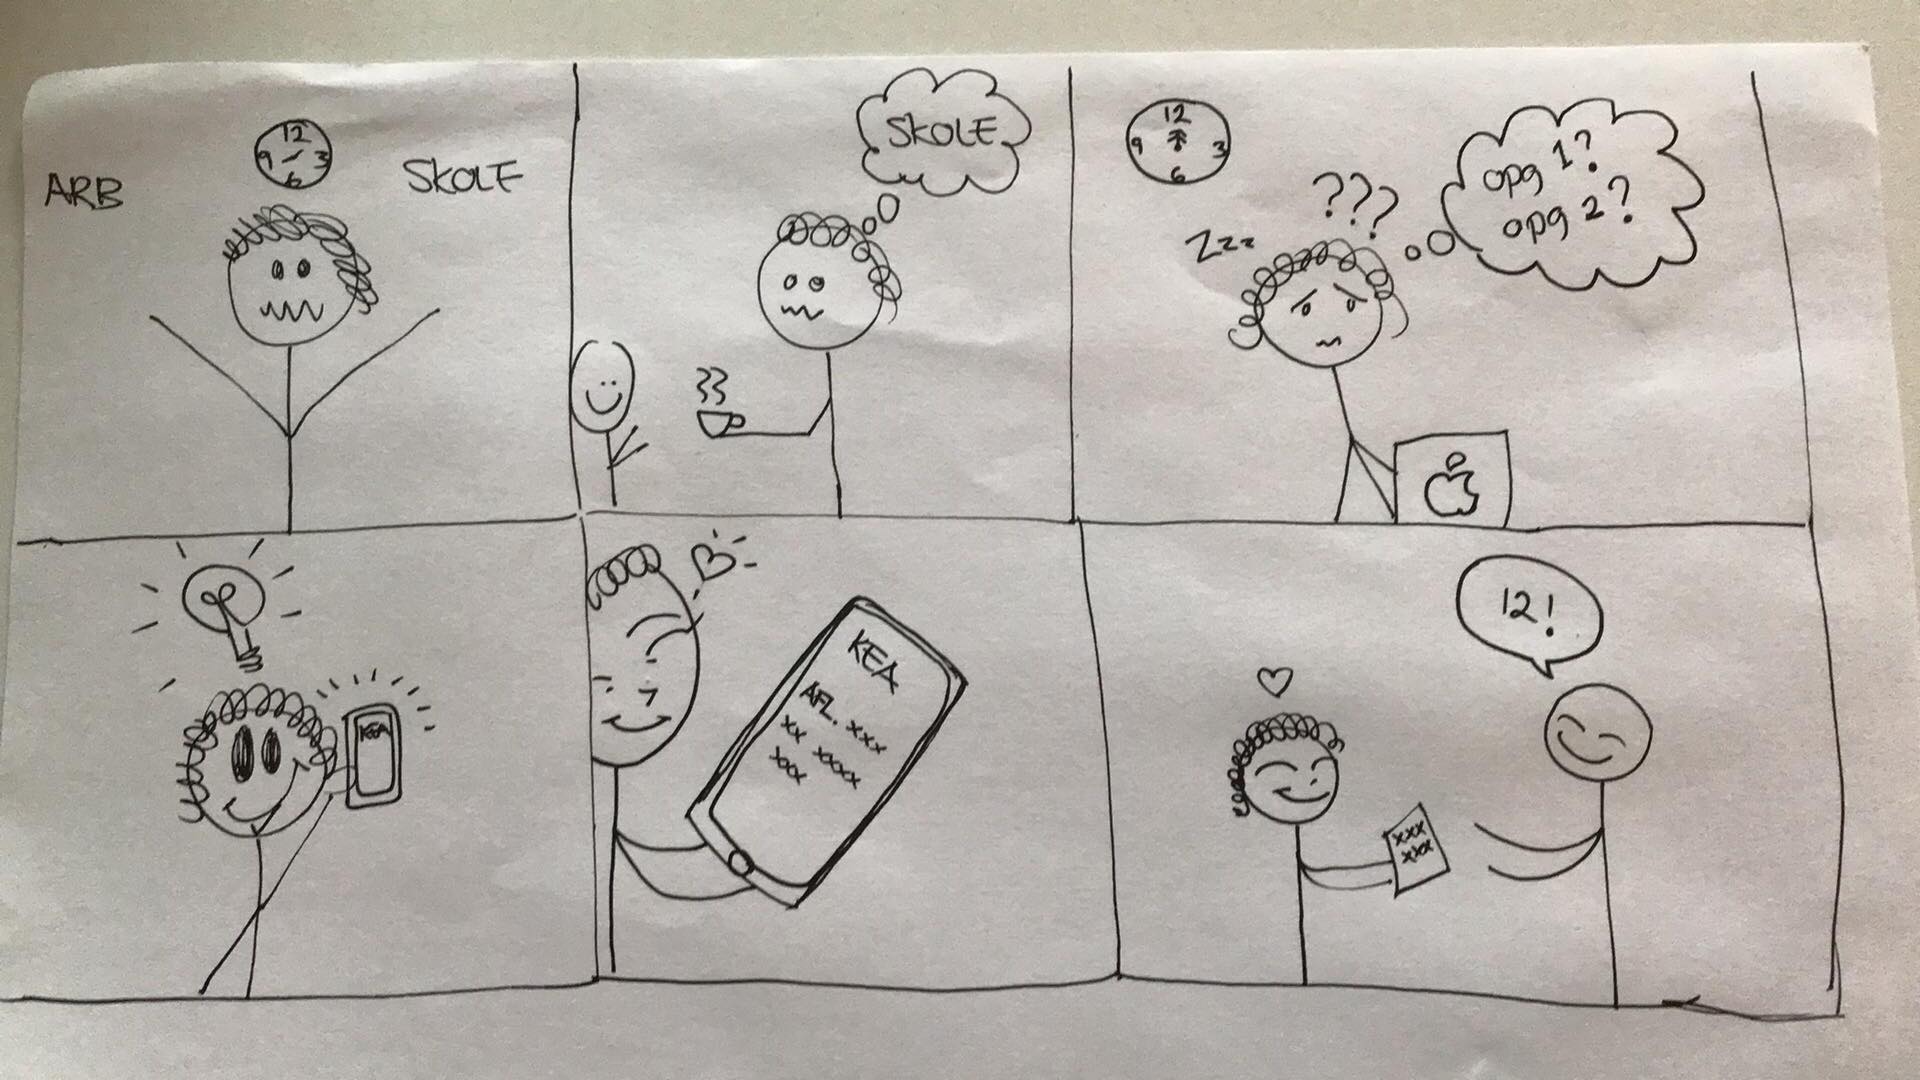 ARB
12
9 3
6
SKOLE
SKOLE
12
9 3
6
Zzz
???
opg 1?
opg 2?
KEA
KEA
AFL. xxx
xx xxxx
xxx
12!
xxx
xxx